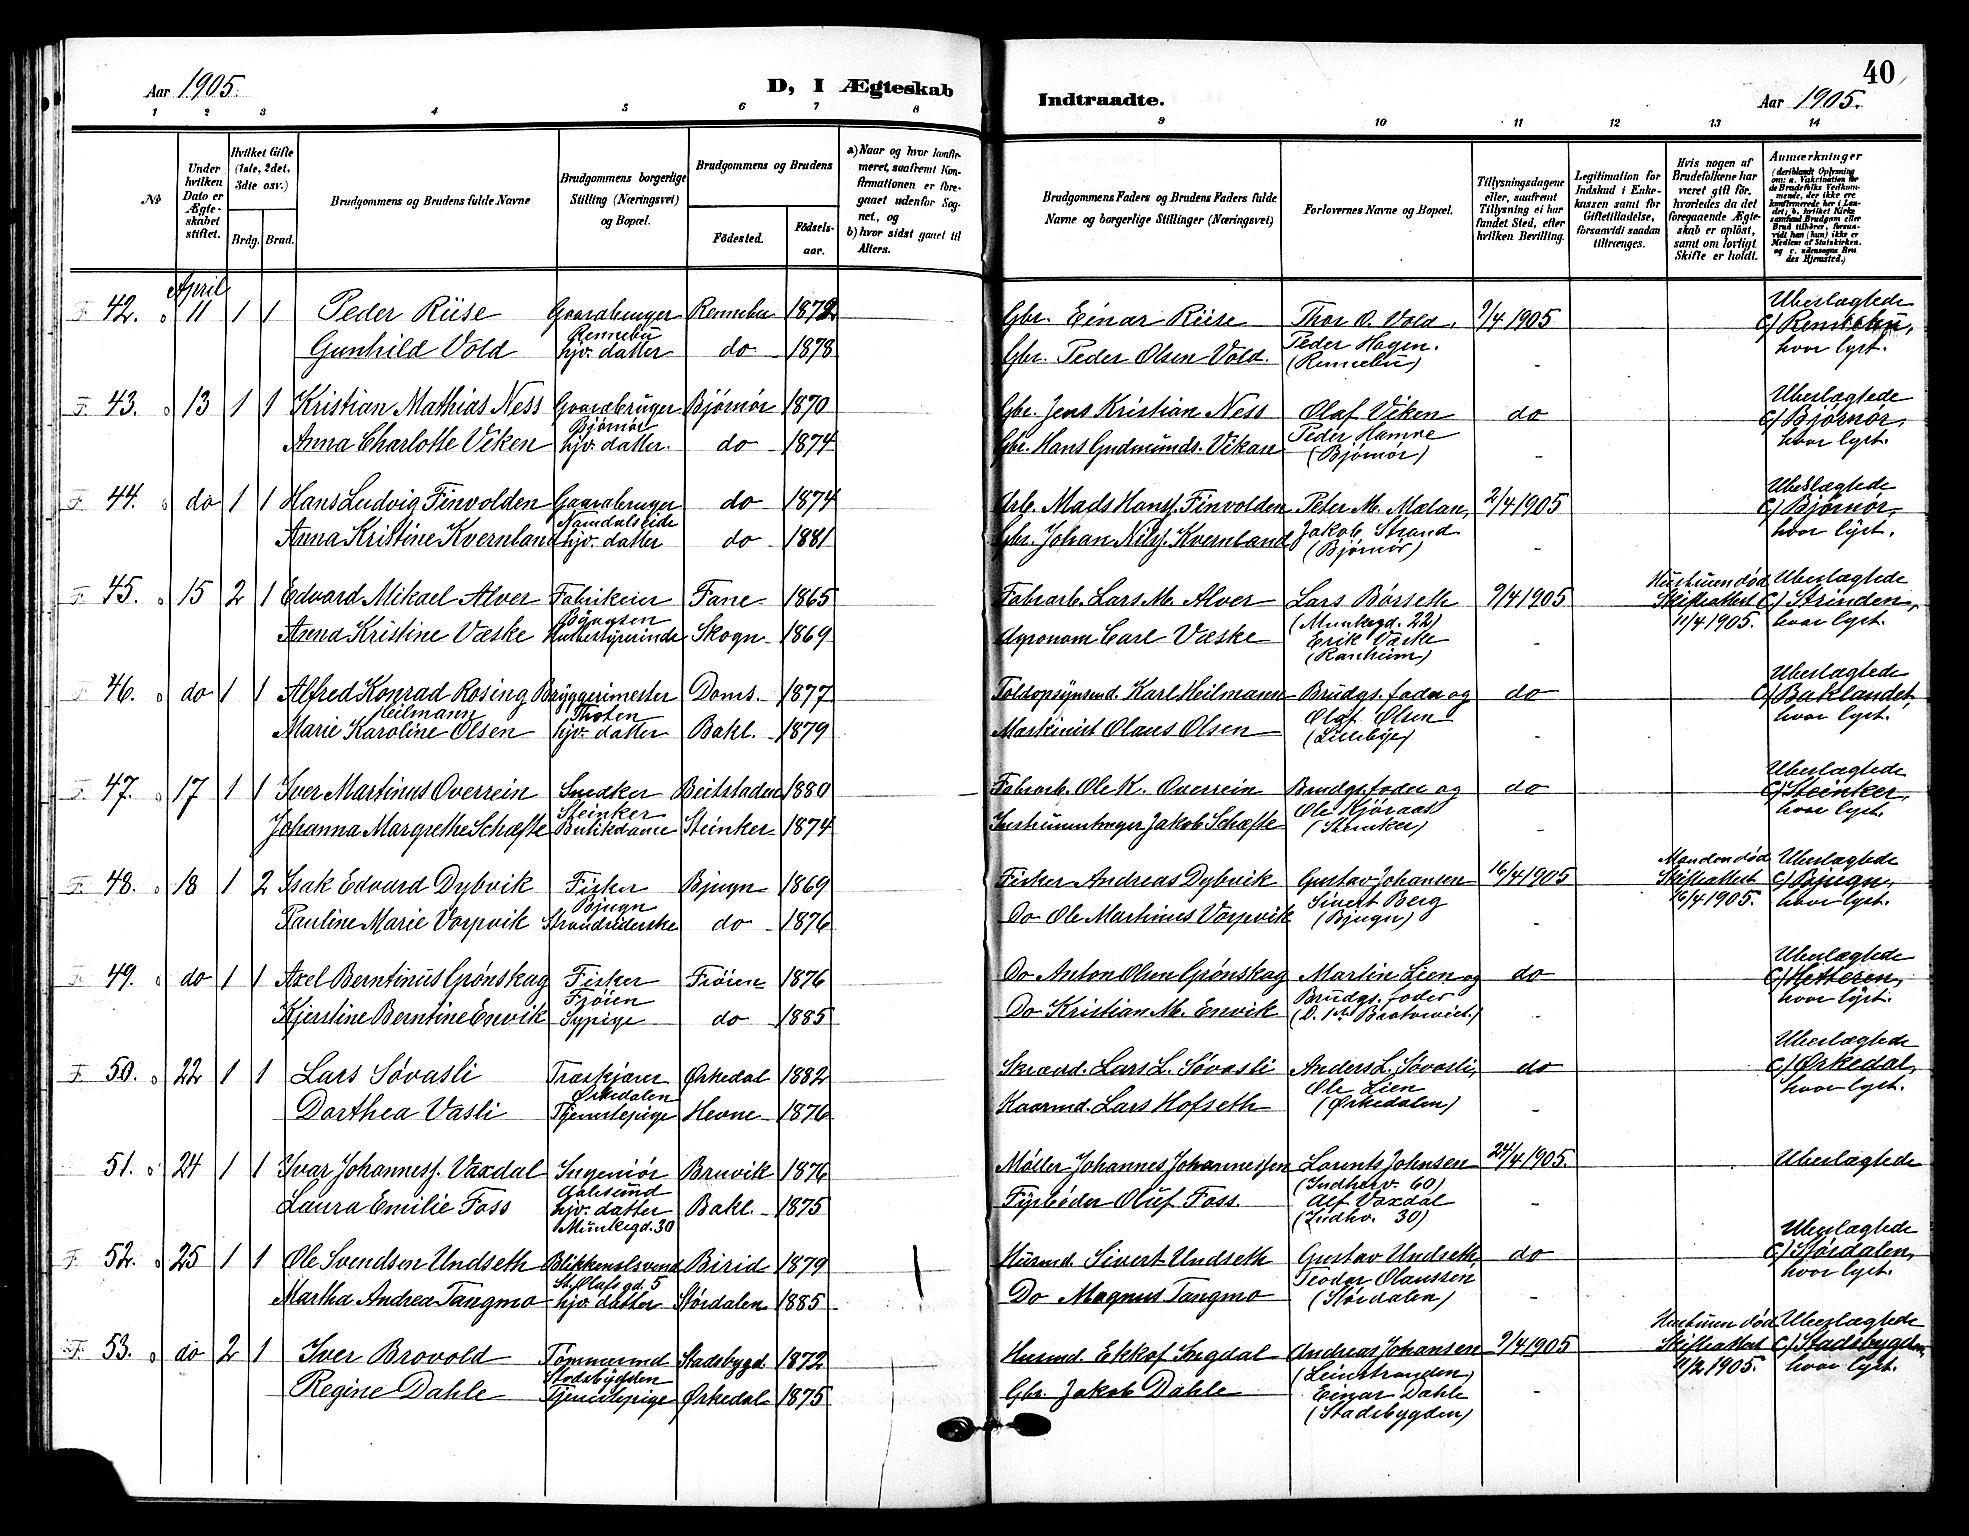 Aar 1905.
D, I Ægteskab
Indtraadte.
40
Aar 1905.
1 2 3 4 5 6 7 8
9 10 11 12 13 14
No
Under hvilken Dato er Ægteskabet stiftet.
Hvilket Gifte (1ste, 2det, 3die osv.)
Brdg. Brud.
Brudgommens og Brudens fulde Navne
Brudgommens borgerlige Stilling (Næringsvei) og Bopæl.
Brudgommens og Brudens
Fødested.
Fødselsaar.
a) Naar og hvor konfirmeret, saafremt Konfirmationen er foregaaet udenfor Sognet, og
b) hvor sidst gaaet til Alters.
Brudgommens Faders og Brudens Faders fulde Navne og borgerlige Stillinger (Næringsvei)
Forlovernes Navne og Bopæl.
Tillysningsdagene eller, saafremt Tillysning ei har fundet Sted, efter hvilken Bevilling.
Legitimation for Indskud i Enkekassen samt for Giftetilladelse, forsaavidt saadan tiltrænges.
Hvis nogen af Brudefolkene har været gift før, hvorledes da det foregaaende Ægteskab er opløst, samt om lovligt Skifte er holdt.
Anmærkninger
April
F 42. 11 1 1 Peder Riise Gaardbruger Rennebu 1872 Gbr. Einar Riise Thor O. Vold, 9/4 1905 Ubeslægtede
Rennebu Peder Hagen. C/ Rennebu,
Gunhild Vold hjv. datter do 1878 Gbr. Peder Olsen Vold. (Rennebu) - hvor lyst.
F. 43. 13 1 1 Kristian Mathias Ness Gaardbruger Bjørnør 1870 Gbr. Jens Kristian Ness Olaf Viken do Ubeslægtede
Bjørnør Peder Hamre C/ Bjørnør,
Anna Charlotte Viken hjv. datter. do 1874 Gbr. Hans Gudmunds. Vikan (Bjørnør) - hvor lyst.
F 44. do 1 1 Hans Ludvig Finvolden Gaardbruger do 1874 Arb. Mads Hansf. Finvolden Peter M. Mælan, 2/4 1905 Ubeslægtede
Namdalseide Jakob Strand C/ Bjørnør,
Anna Kristine Kvernland hjv. datter do 1881 Gbr. Johan Nilsf. Kvernland (Bjørnør) - hvor lyst.
F. 45. 15 2 1 Edvard Mikael Alver Fabrikeier Fane 1865 Fabrarb. Lars M. Alver Lars Børseth 9/4 1905 Hustruen død Ubeslægtede
(Munkegd. 22) Skifteattest C/ Strinden,
Kristine Væske Skogn 1869 Agronom Carl Væske Erik Væske - 11/4 1905. hvor lyst.
(Ranheim)
F 46. do 1 1 Alfred Konrad Rosing Bryggerimester Doms. 1877 Toldopsynsmd. Karl Heilmann Brudgs. fader og do Ubeslægtede
Heilmann Thoten Olaf Olsen C/ Baklandet,
Marie Karoline Olsen hjv. datter Bakl. 1879 Maskinist Olaus Olsen (Lilleby) - hvor lyst.
F. 47. 17 1 1 Iver Martinus Overrein Snedker Beitstaden 1880 Fabrarb. Ole K. Overrein Brudgs. fader og do Ubeslægtede
Steinker Ole Kjøraas C/ Steinker,
Johanna Margrethe Schæfte Butikdame Steinker 1874 Instrumentmager Jakob Schæfte (Steinker) - hvor lyst.
F. 48. 18 1 2 Isak Edvard Dybvik Fisker Bjugn 1869 Fisker Andreas Dybvik Gustav Johansen 16/4 1905 Manden død Ubeslægtede
Bjugn Sivert Berg Skifteattest C/ Bjugn,
Pauline Marie Vorpvik do 1876 Do Ole Martinus Vorpvik (Bjugn) - 16/4 1905. hvor lyst.
F 49. do 1 1 Axel Berntinus Grønskag Fisker Frøien 1876 Do Anton Olsen Grønskag Martin Lien og do Ubeslægtede
Frøien Brudgs. fader C/ Hitteren,
Kjerstine Berntine Envik Sypige do 1885 Do Kristian M. Envik - hvor lyst.
F 50. 22 1 1 Lars Søvasli Træskjærer Ørkedal 1882 Skrædd. Lars L. Søvasli Anders L. Søvasli, do Ubeslægtede
Ørkedalen Ole Lien C/ Ørkedal,
Dorthea Vasli Tjenestepige Hevne 1876 Kaarmd. Lars Hofseth (Ørkedalen) - hvor lyst.
51. 24 1 1 Ivar Johannesf. Vaxdal Ingeniør Bruvik 1876 Møller Johannes Johannessen Lorents Johnsen 24/4 1905. Ubeslægtede
Aalesund (Indherv. 60)
Laura Emilie Foss hjv. datter Bakl. 1875 Fyrbøder Oluf Foss. Alf Vaxdal -
Munkegd. 30 (Indhv. 30)
F 52. 25 1 1 Ole Svendsen Undseth Blikkenslsvend Birid 1879 Husmd. Sivert Undseth Gustav Undseth, do Ubeslægtede
St. Olafs gd. 5 Teodor Olaussen C/ Størdalen,
Martha Andrea Tangmo hjv. datter Størdalen 1885 Do Magnus Tangmo (Størdalen) - hvor lyst.
F. 53. do 2 1 Iver Brovold Tømmermd Stadsbygd 1872 Husmd. Ekkof Ingdal Andreas Johansen 9/4 1905 Hustruen død Ubeslægtede
Stadsbygden (Leinstranden) Skifteattest C/ Stadsbygden,
Regine Dahle Tjenestepige Ørkedal 1875 Gbr. Jakob Dahle Einar Dahle - 11/2 1905. hvor lyst.
(Stadsbygden)